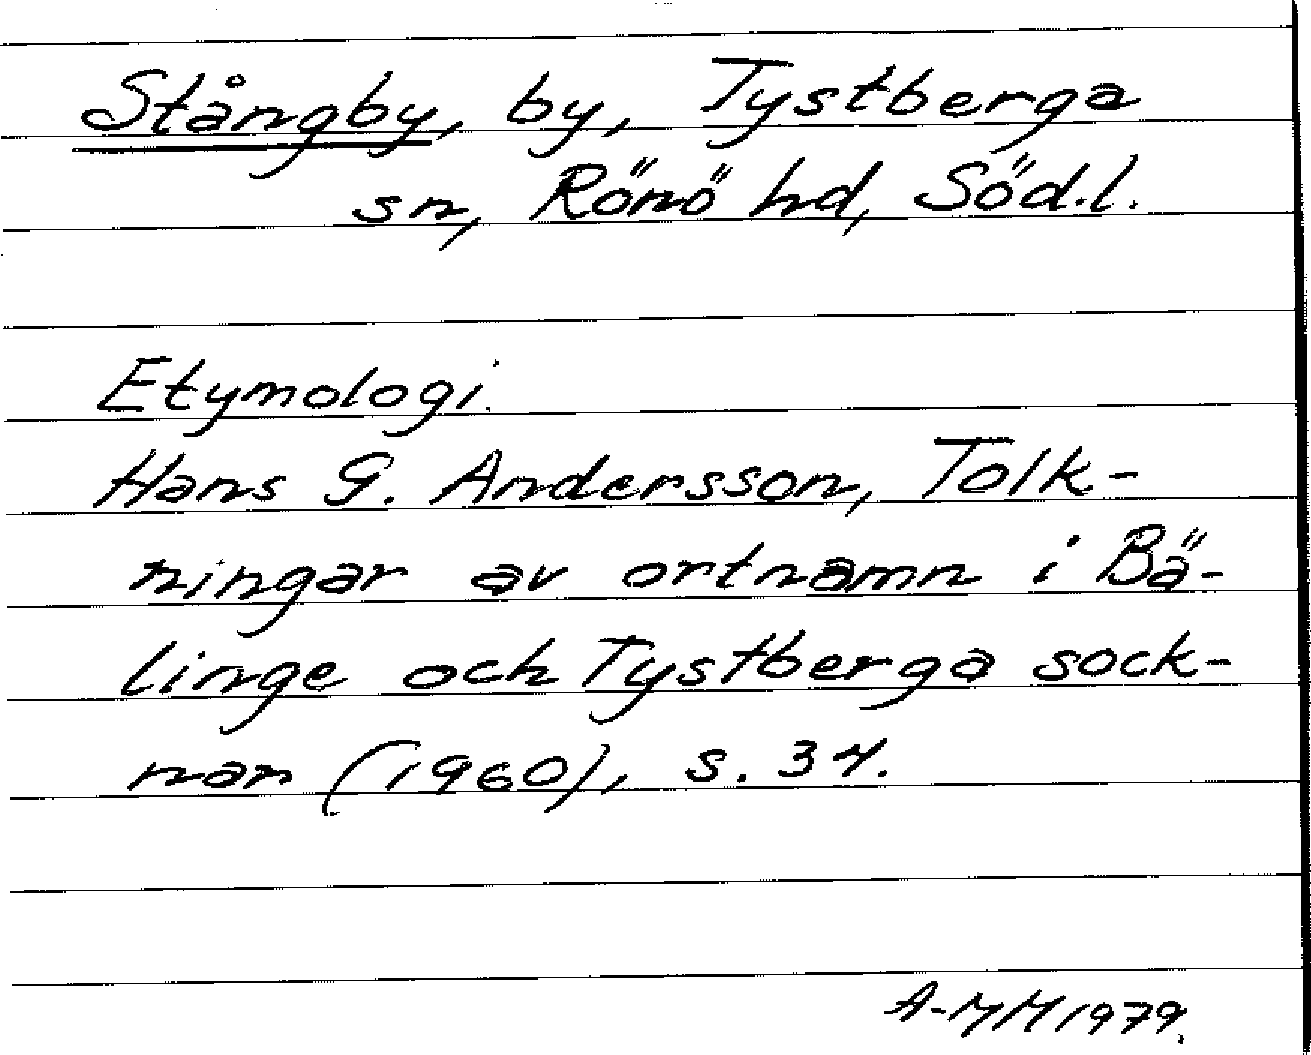 Stångby, by, Tystberga
sn, Rönö hd, Söd.l.
Etymologi.
Hans G. Andersson, Tolk-
ningar av ortnamn i Bä-
linge och Tystberga sock-
nar (1960), s. 34.
A-MM 1979.